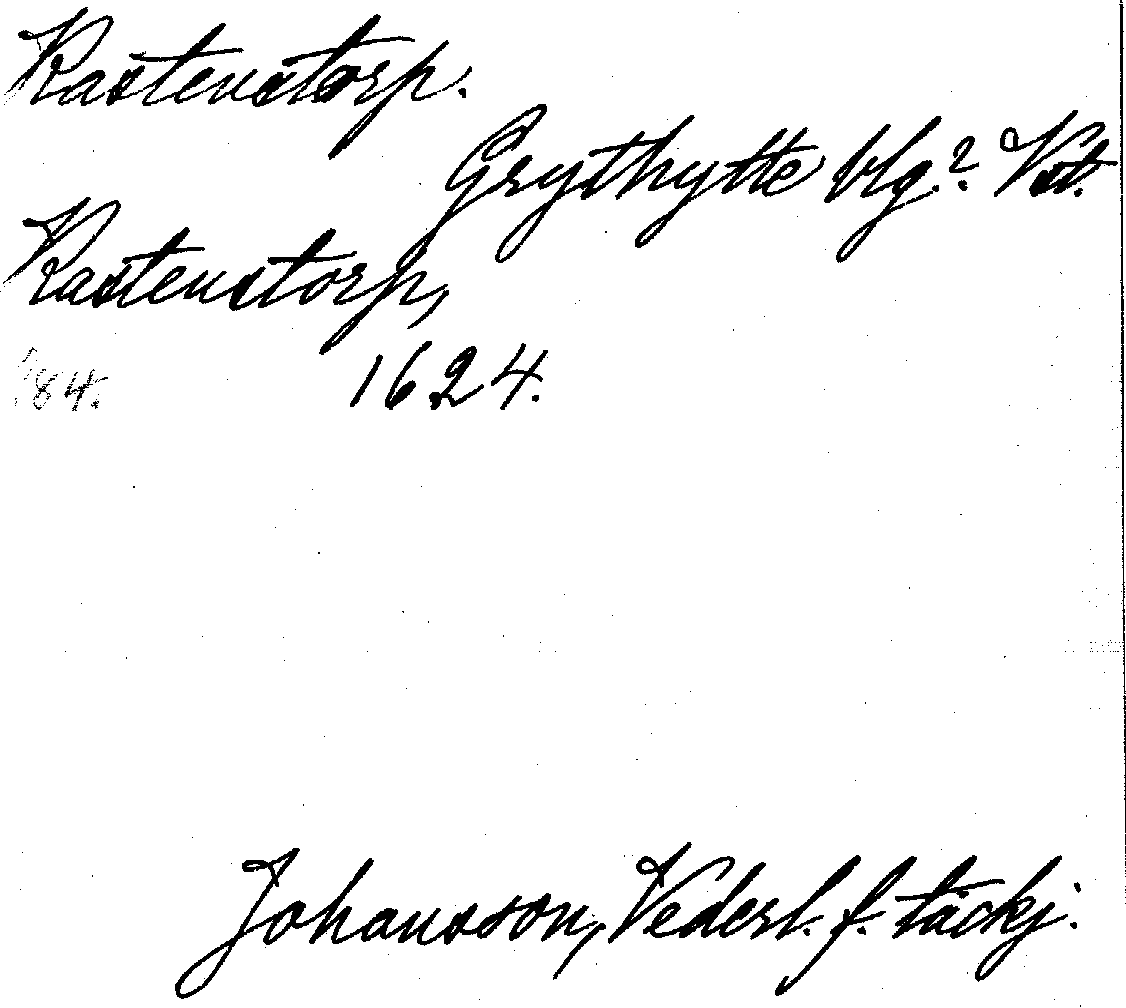 Rastenstorp.
Grythytte blg? Vstl.
Rastenstorp,
84. 1624.
Johansson, Vederl. f. tackj.